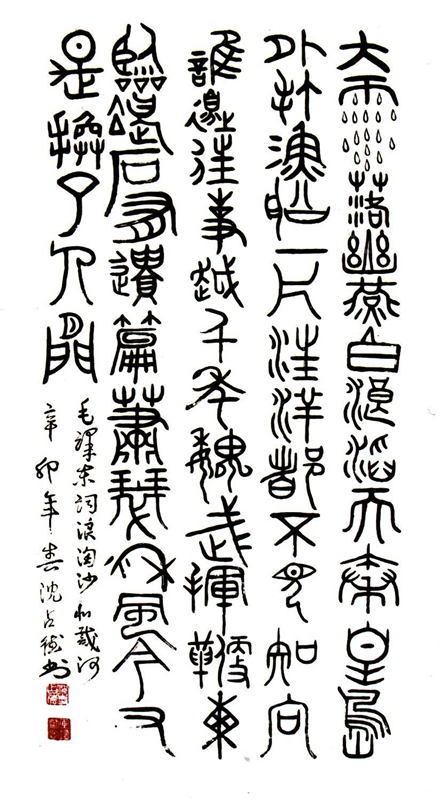 大雨落幽燕白浪滔天秦皇島
外打漁船一片汪洋都不見知向
誰邊往事越千年魏武揮鞭東
臨碣石有遺篇蕭瑟秋風今又
是換了人間
毛澤東詞浪淘沙北戴河
辛卯年春沈占德书